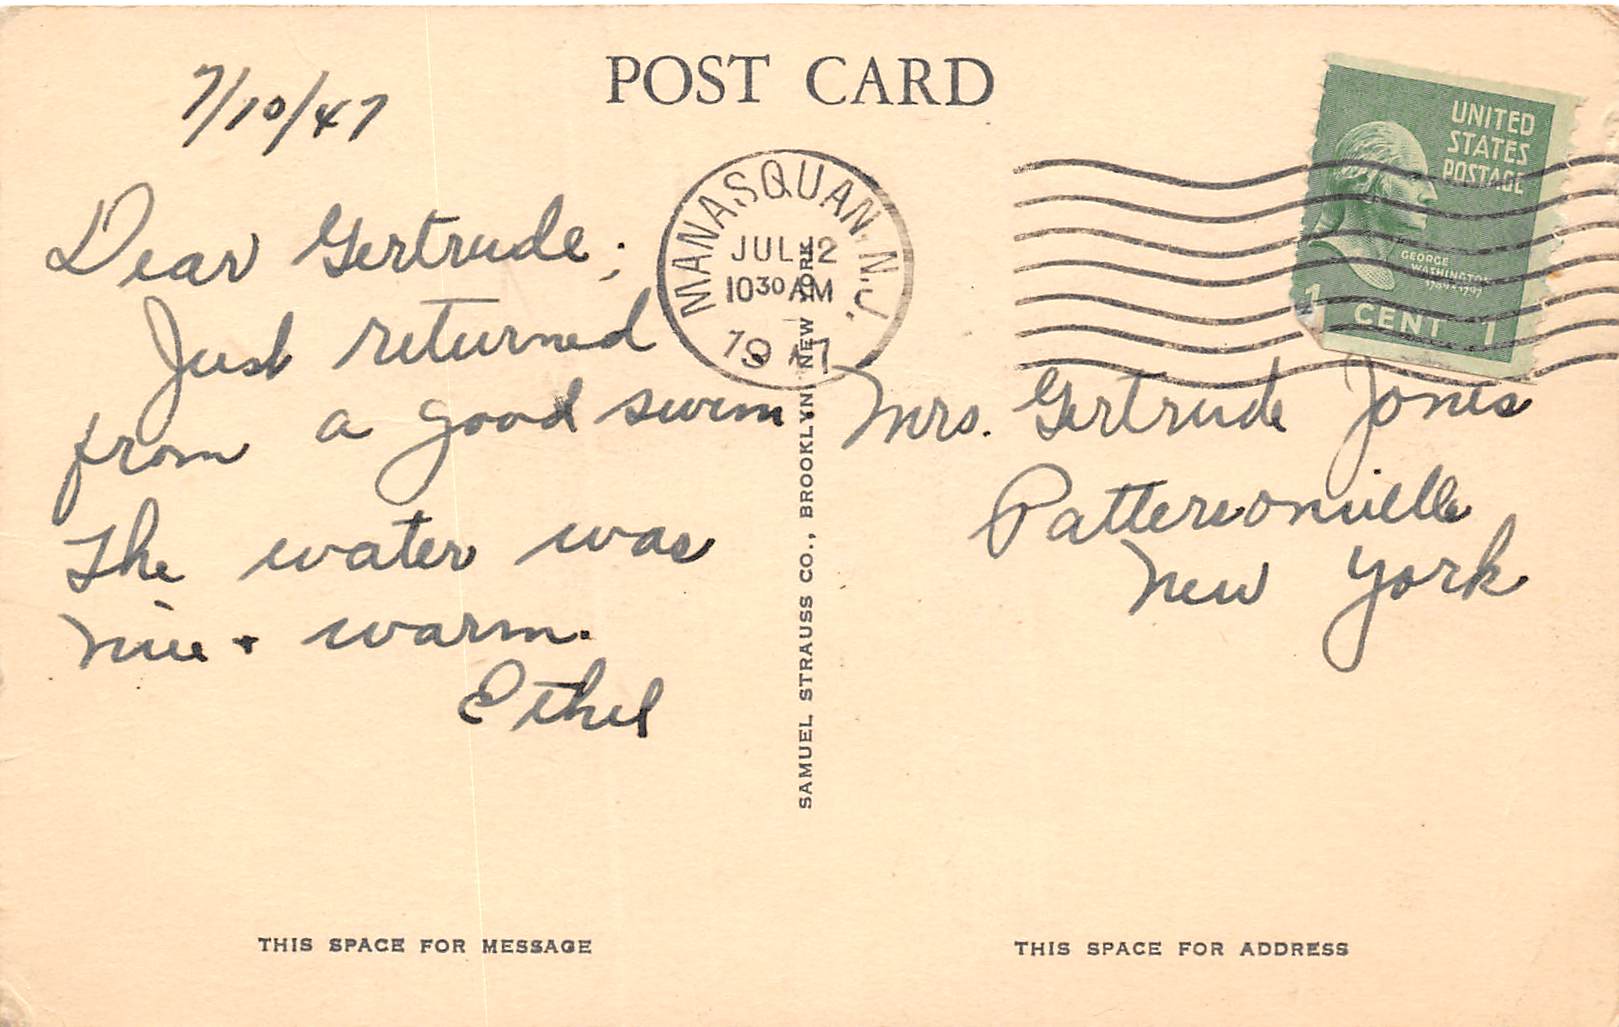 POST CARD
7/10/47
Dear Gertrude;
Just returned
from a good swim.
The water was
nice + warm.
Ethel
MANASQUAN, N.J.
JUL 12
10 30 AM
1947
UNITED
STATES
POSTAGE
GEORGE
WASHINGTON
1789-1797
1 CENT 1
Mrs. Gertrude Jones
Pattersonville
New York
SAMUEL STRAUSS CO., BROOKLYN, NEW YORK
THIS SPACE FOR MESSAGE
THIS SPACE FOR ADDRESS